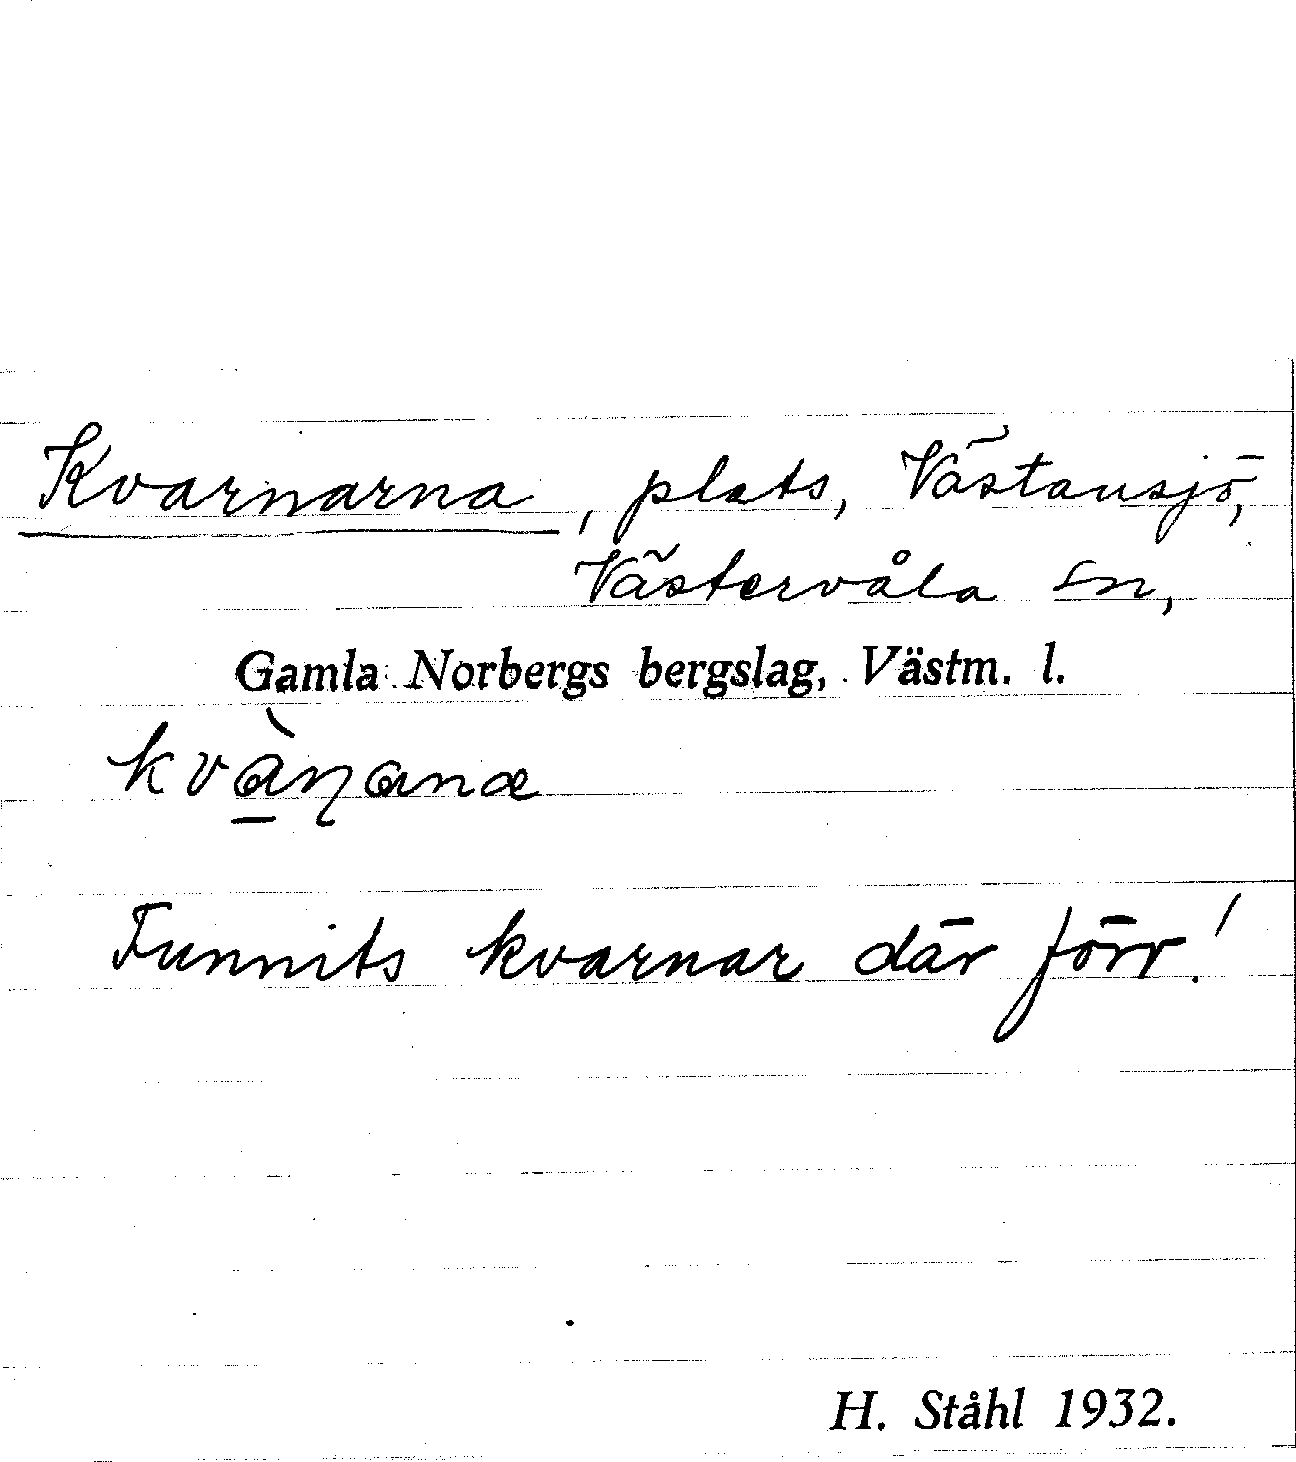 Kvarnarna, plats, Västansjö,
Västervåla sn,
Gamla Norbergs bergslag, Västm. l.
Funnits kvarnar där förr!
H. Ståhl 1932.